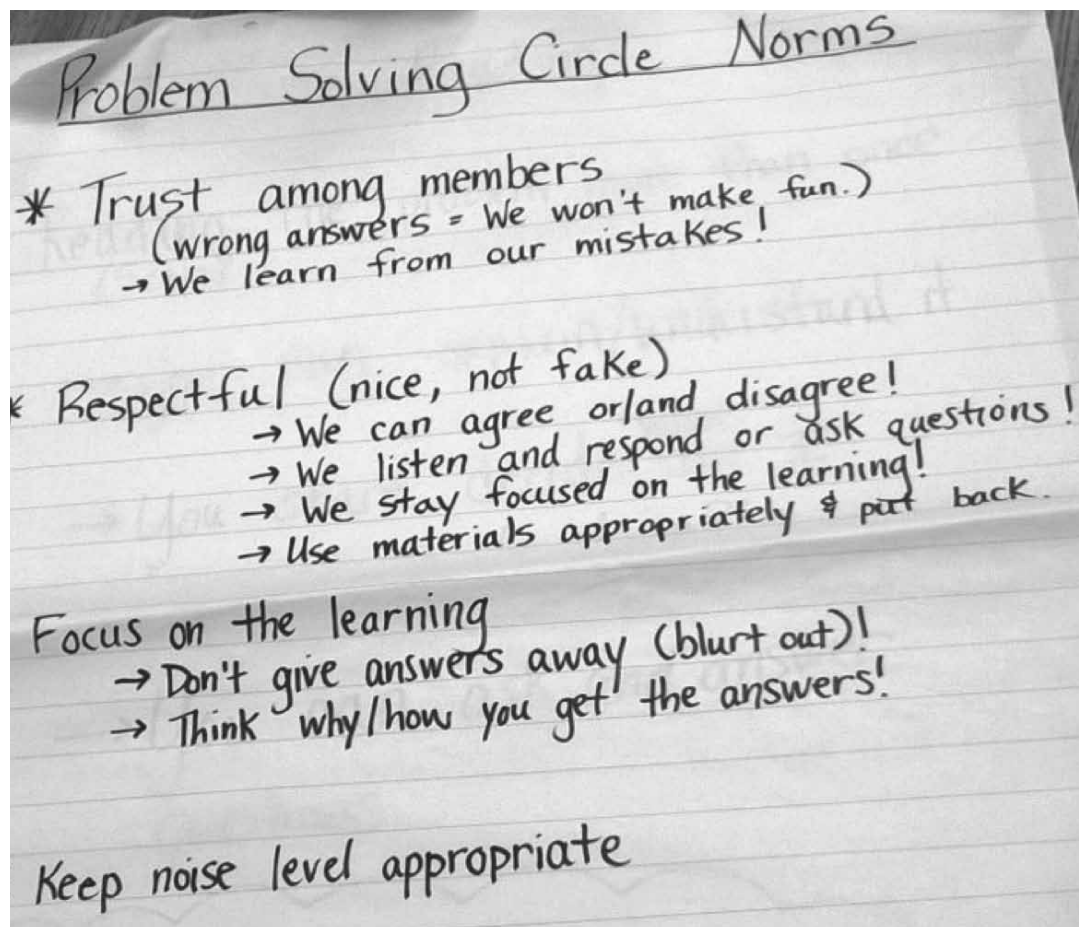 Problem Solving Circle Norms
* Trust among members
(wrong answers = We won't make fun.)
→ We learn from our mistakes!
* Respectful (nice, not fake)
→ We can agree or/and disagree!
→ We listen and respond or ask questions!
→ We stay focused on the learning!
→ Use materials appropriately & put back.
Focus on the learning
→ Don't give answers away (blurt out)!
→ Think why/how you get the answers!
Keep noise level appropriate